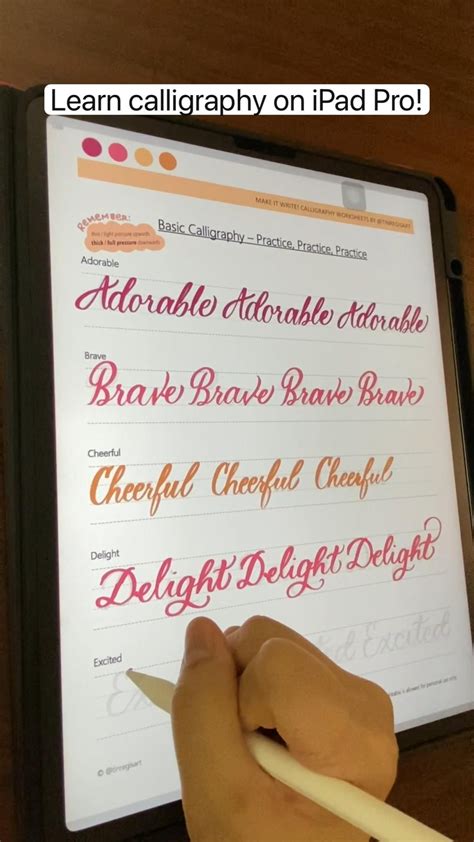 Learn calligraphy on iPad Pro!
MAKE IT WRITE! CALLIGRAPHY WORKSHEETS BY
REMEMBER:
thin / light pressure upwards,
thick / full pressure downwards
Basic Calligraphy – Practice, Practice, Practice
Adorable
Adorable Adorable Adorable
Brave
Brave Brave Brave Brave
Cheerful
Cheerful Cheerful Cheerful
Delight
Delight Delight Delight
Excited
Excited
is allowed for personal use only